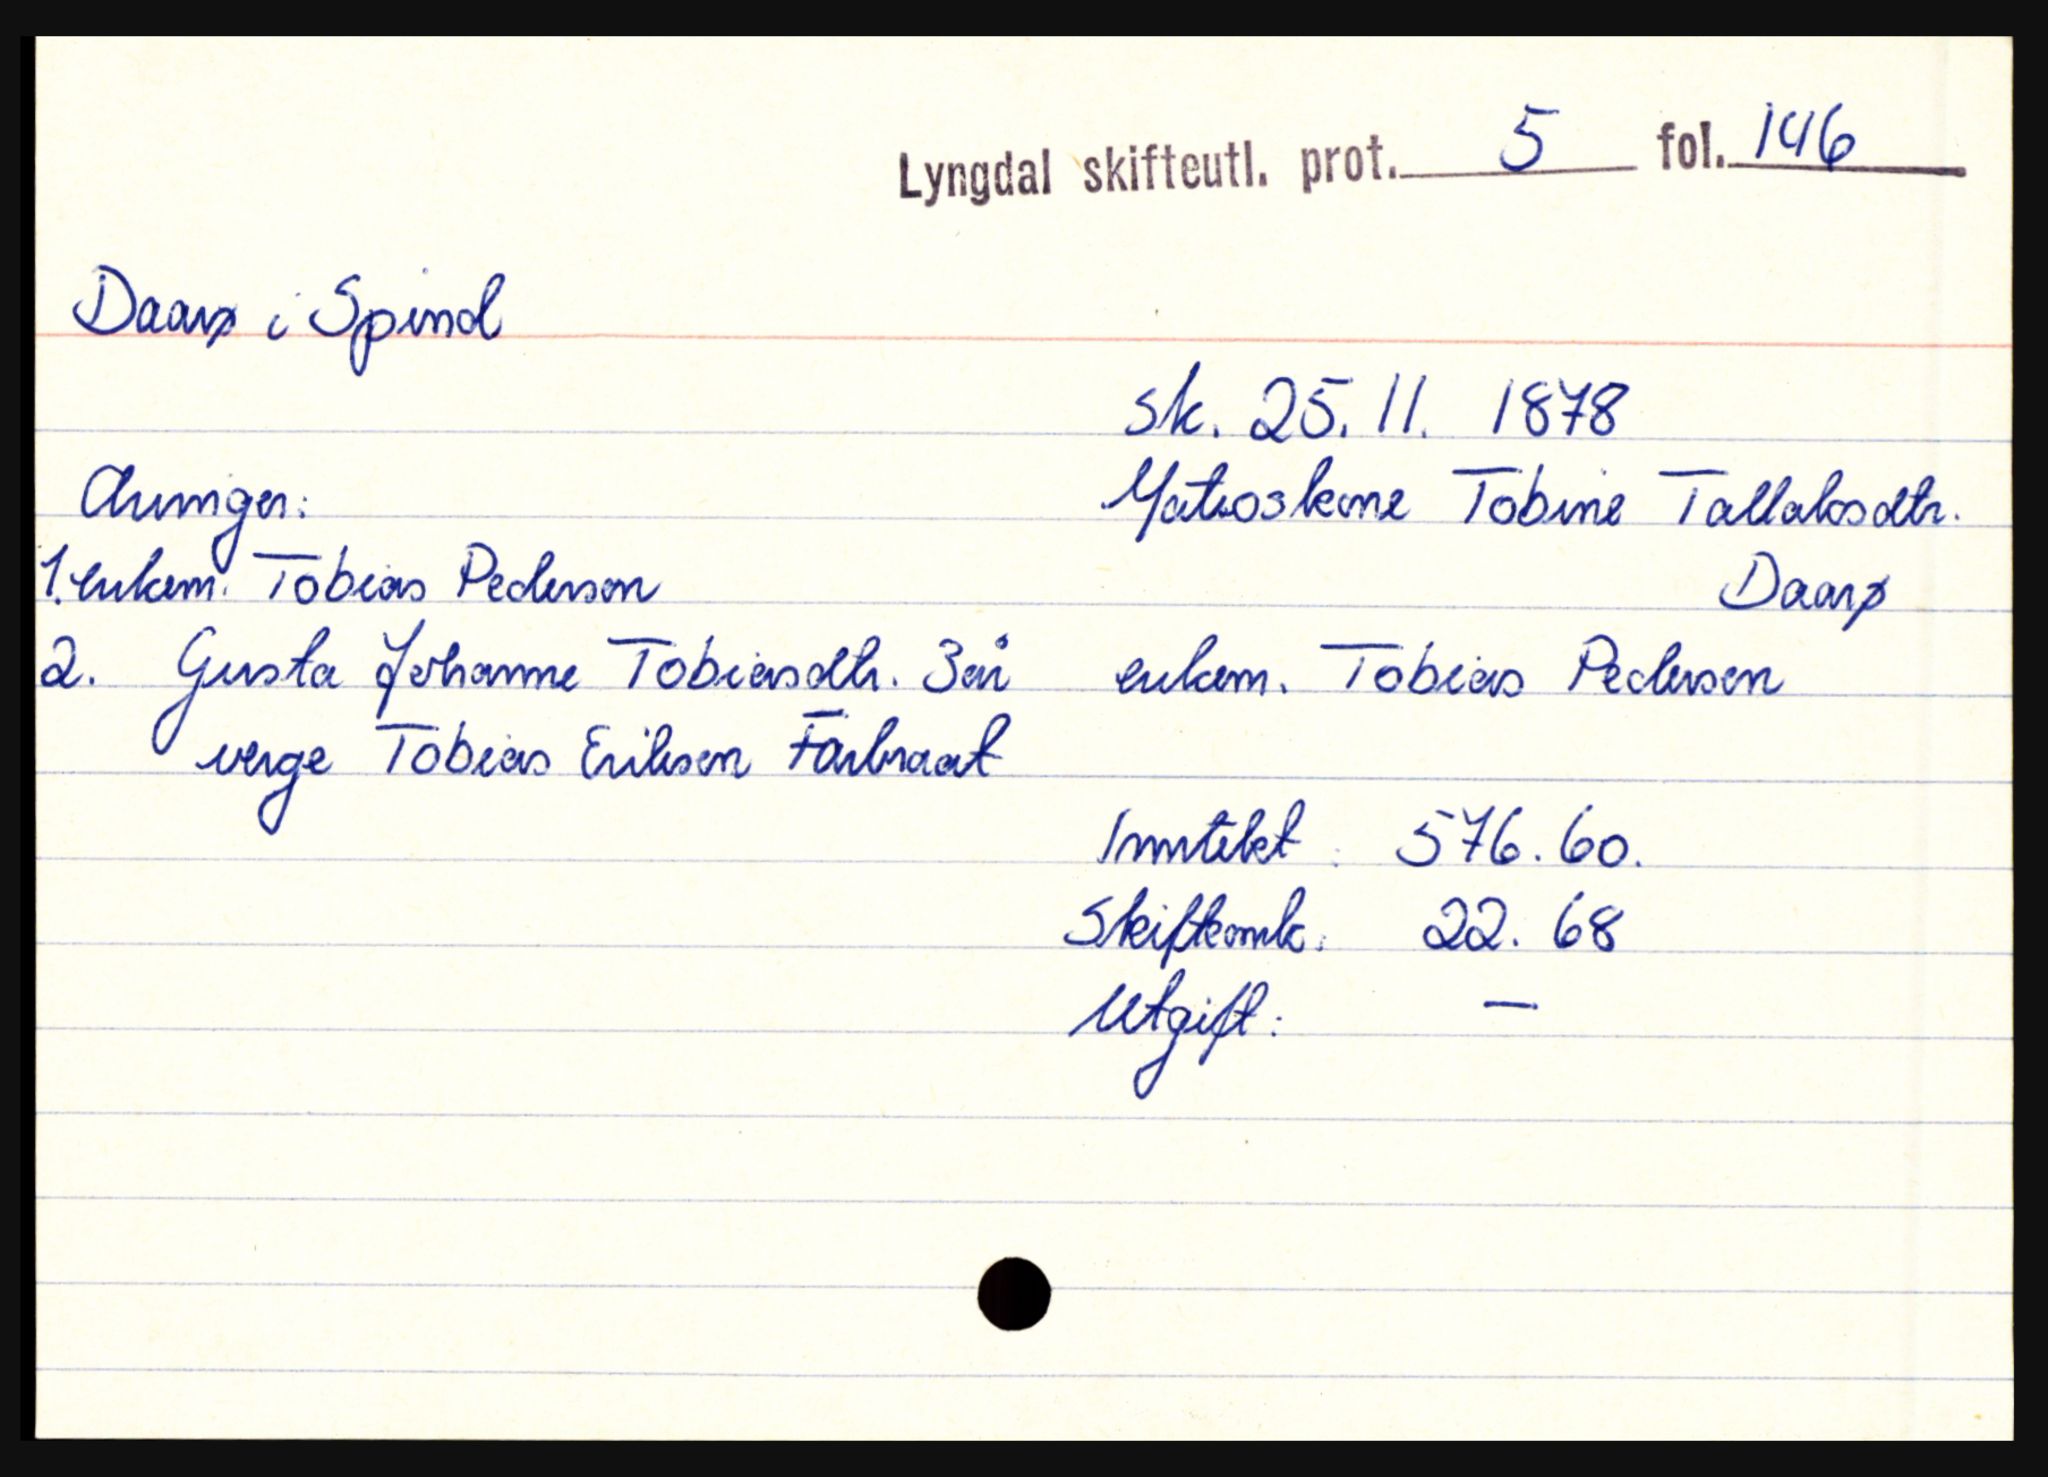 Lyngdal skifteutl. prot. 5 fol. 146
Daarø i Spind
sk. 25. 11. 1878
Arvinger:
Matroskone Tobine Tallaksdtr.
Daarø
1. enkem. Tobias Pedersen
2. Gusta Johanne Tobiasdtr. 3 år
verge Tobias Eriksen Farbraat
enkem. Tobias Pedersen
Inntekt: 576.60.
Skiftomk: 22.68
Utgift: —